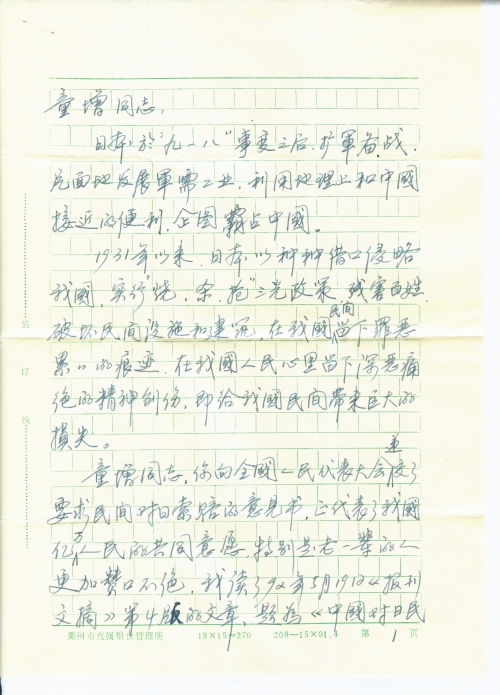 童增同志,
日本於"九一八"事变之后,扩軍备战,
尼面地发展軍需工业,利用地理上和中國
接近的便利,企图霸占中國。
1931年以来,日本以种种借口侵略
我國,实行"烧、杀、抢"三光政策,残害百姓,
破坏民间设施和建筑,在我國民间留下罪恶
累々的痕迹,在我國人民心里留下深恶痛
绝的精神创伤,即给我國民间带来巨大的
損失。
童增同志,你向全國人民代表大会並
要求民间对日索賠的意见书,正代表了我國
亿万人民的共同意愿,特别是老一辈的人
更加赞口不绝,我读了92年5月19日《报刊
文摘》第4版的文章,题為《中國对日民
衢州市直属粮食管理所 18×15=270 208—15×91.4 第1頁
装
订
线